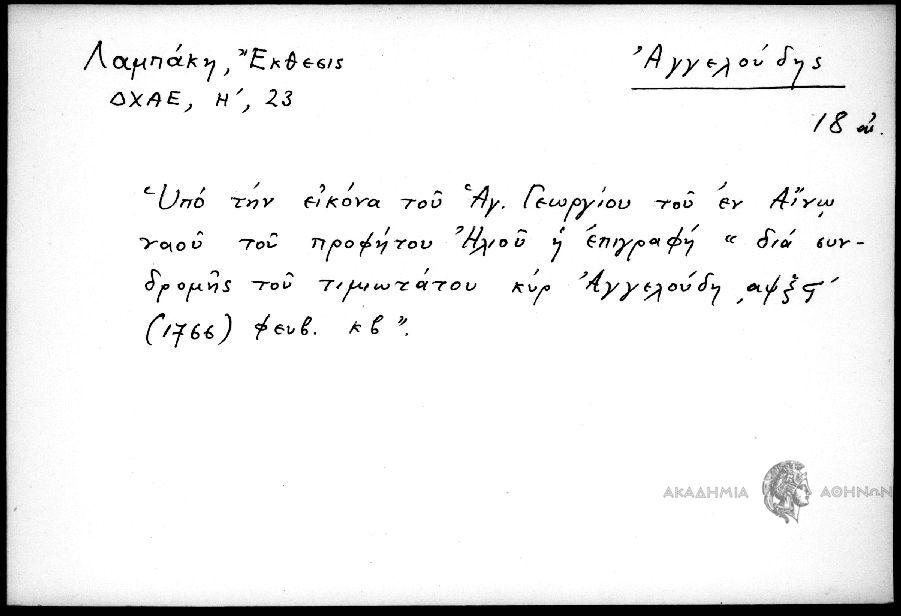 Λαμπάκη, Ἔκθεσις
ΔΧΑΕ, Η΄, 23
Ἀγγελούδης
18 αἰ.
Ὑπό τήν εἰκόνα τοῦ Ἁγ. Γεωργίου τοῦ ἐν Αἴνῳ
ναοῦ τοῦ προφήτου Ἠλιοῦ ἡ ἐπιγραφή « διά συν-
δρομῆς τοῦ τιμιωτάτου κύρ Ἀγγελούδη ͵αψξϛ΄
(1766) φευβ. κβ ".
ΑΚΑΔΗΜΙΑ ΑΘΗΝΩΝ